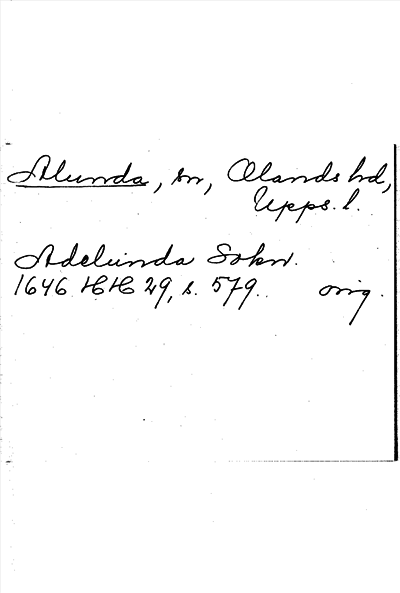 Alunda, sn, Olands hd,
Upps. l.
Adelunda Sokn.
1646 HH 29, s. 579. orig.